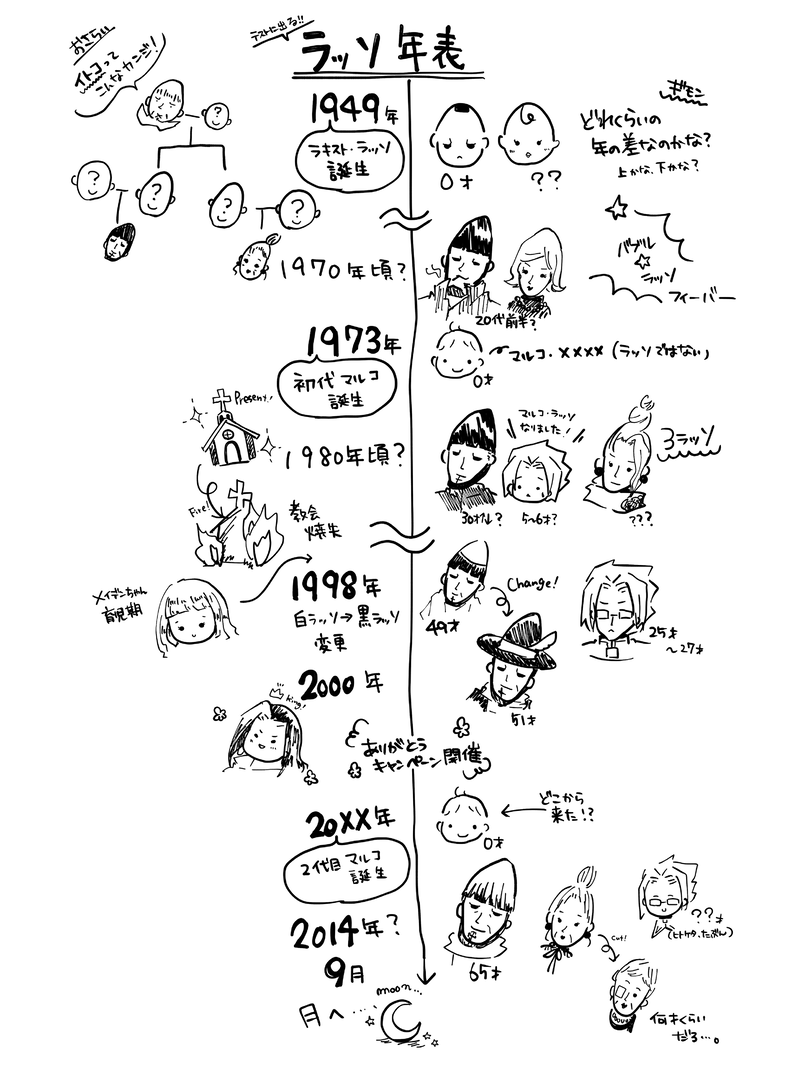 おさらい
イトコって
こんなカンジ!
テストに出る!!
ラッソ年表
?
?
?
?
?
1949年
ラキスト・ラッソ
誕生
0才
??
ギモン
どれくらいの
年の差なのかな?
上かな、下かな?
1970年頃?
20代前半?
バブル
ラッソ
フィーバー
1973年
初代マルコ
誕生
0才
マルコ・××××(ラッソではない)
Present!
1980年頃?
マルコ・ラッソ
なりました!
3ラッソ
30才ル?
5~6才?
???
Fire!
教会
焼失
メイデンちゃん
育児期
1998年
白ラッソ→黒ラッソ
変更
49才
Change!
51才
25才
~27才
2000年
King!
ありがとう
キャンペーン開催
20XX年
2代目マルコ
誕生
0才
どこから
来た!?
2014年?
9月
65才
Cut!
??才
(ヒトケタ、たぶん)
何才くらい
だろ…。
月へ…
moon…